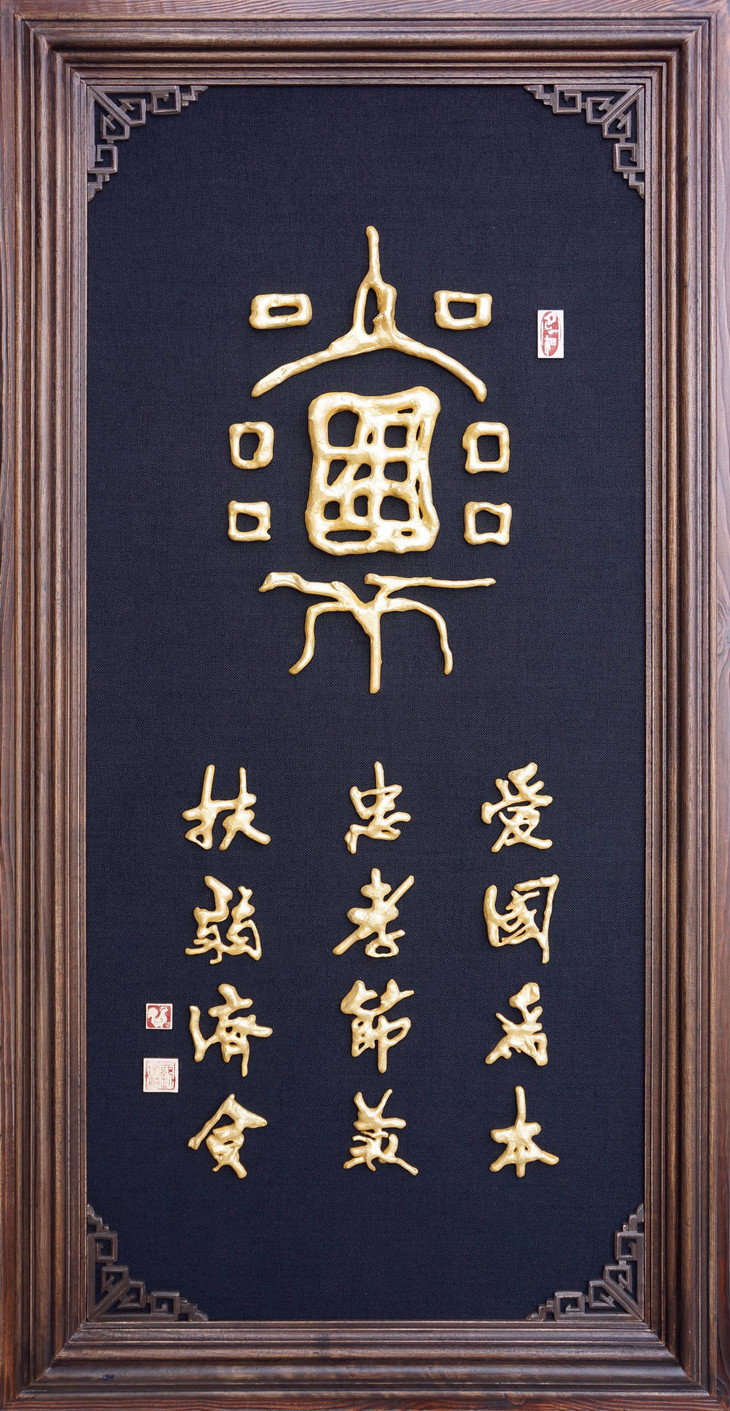 愛國爲本
忠孝節義
扶弱濟貧